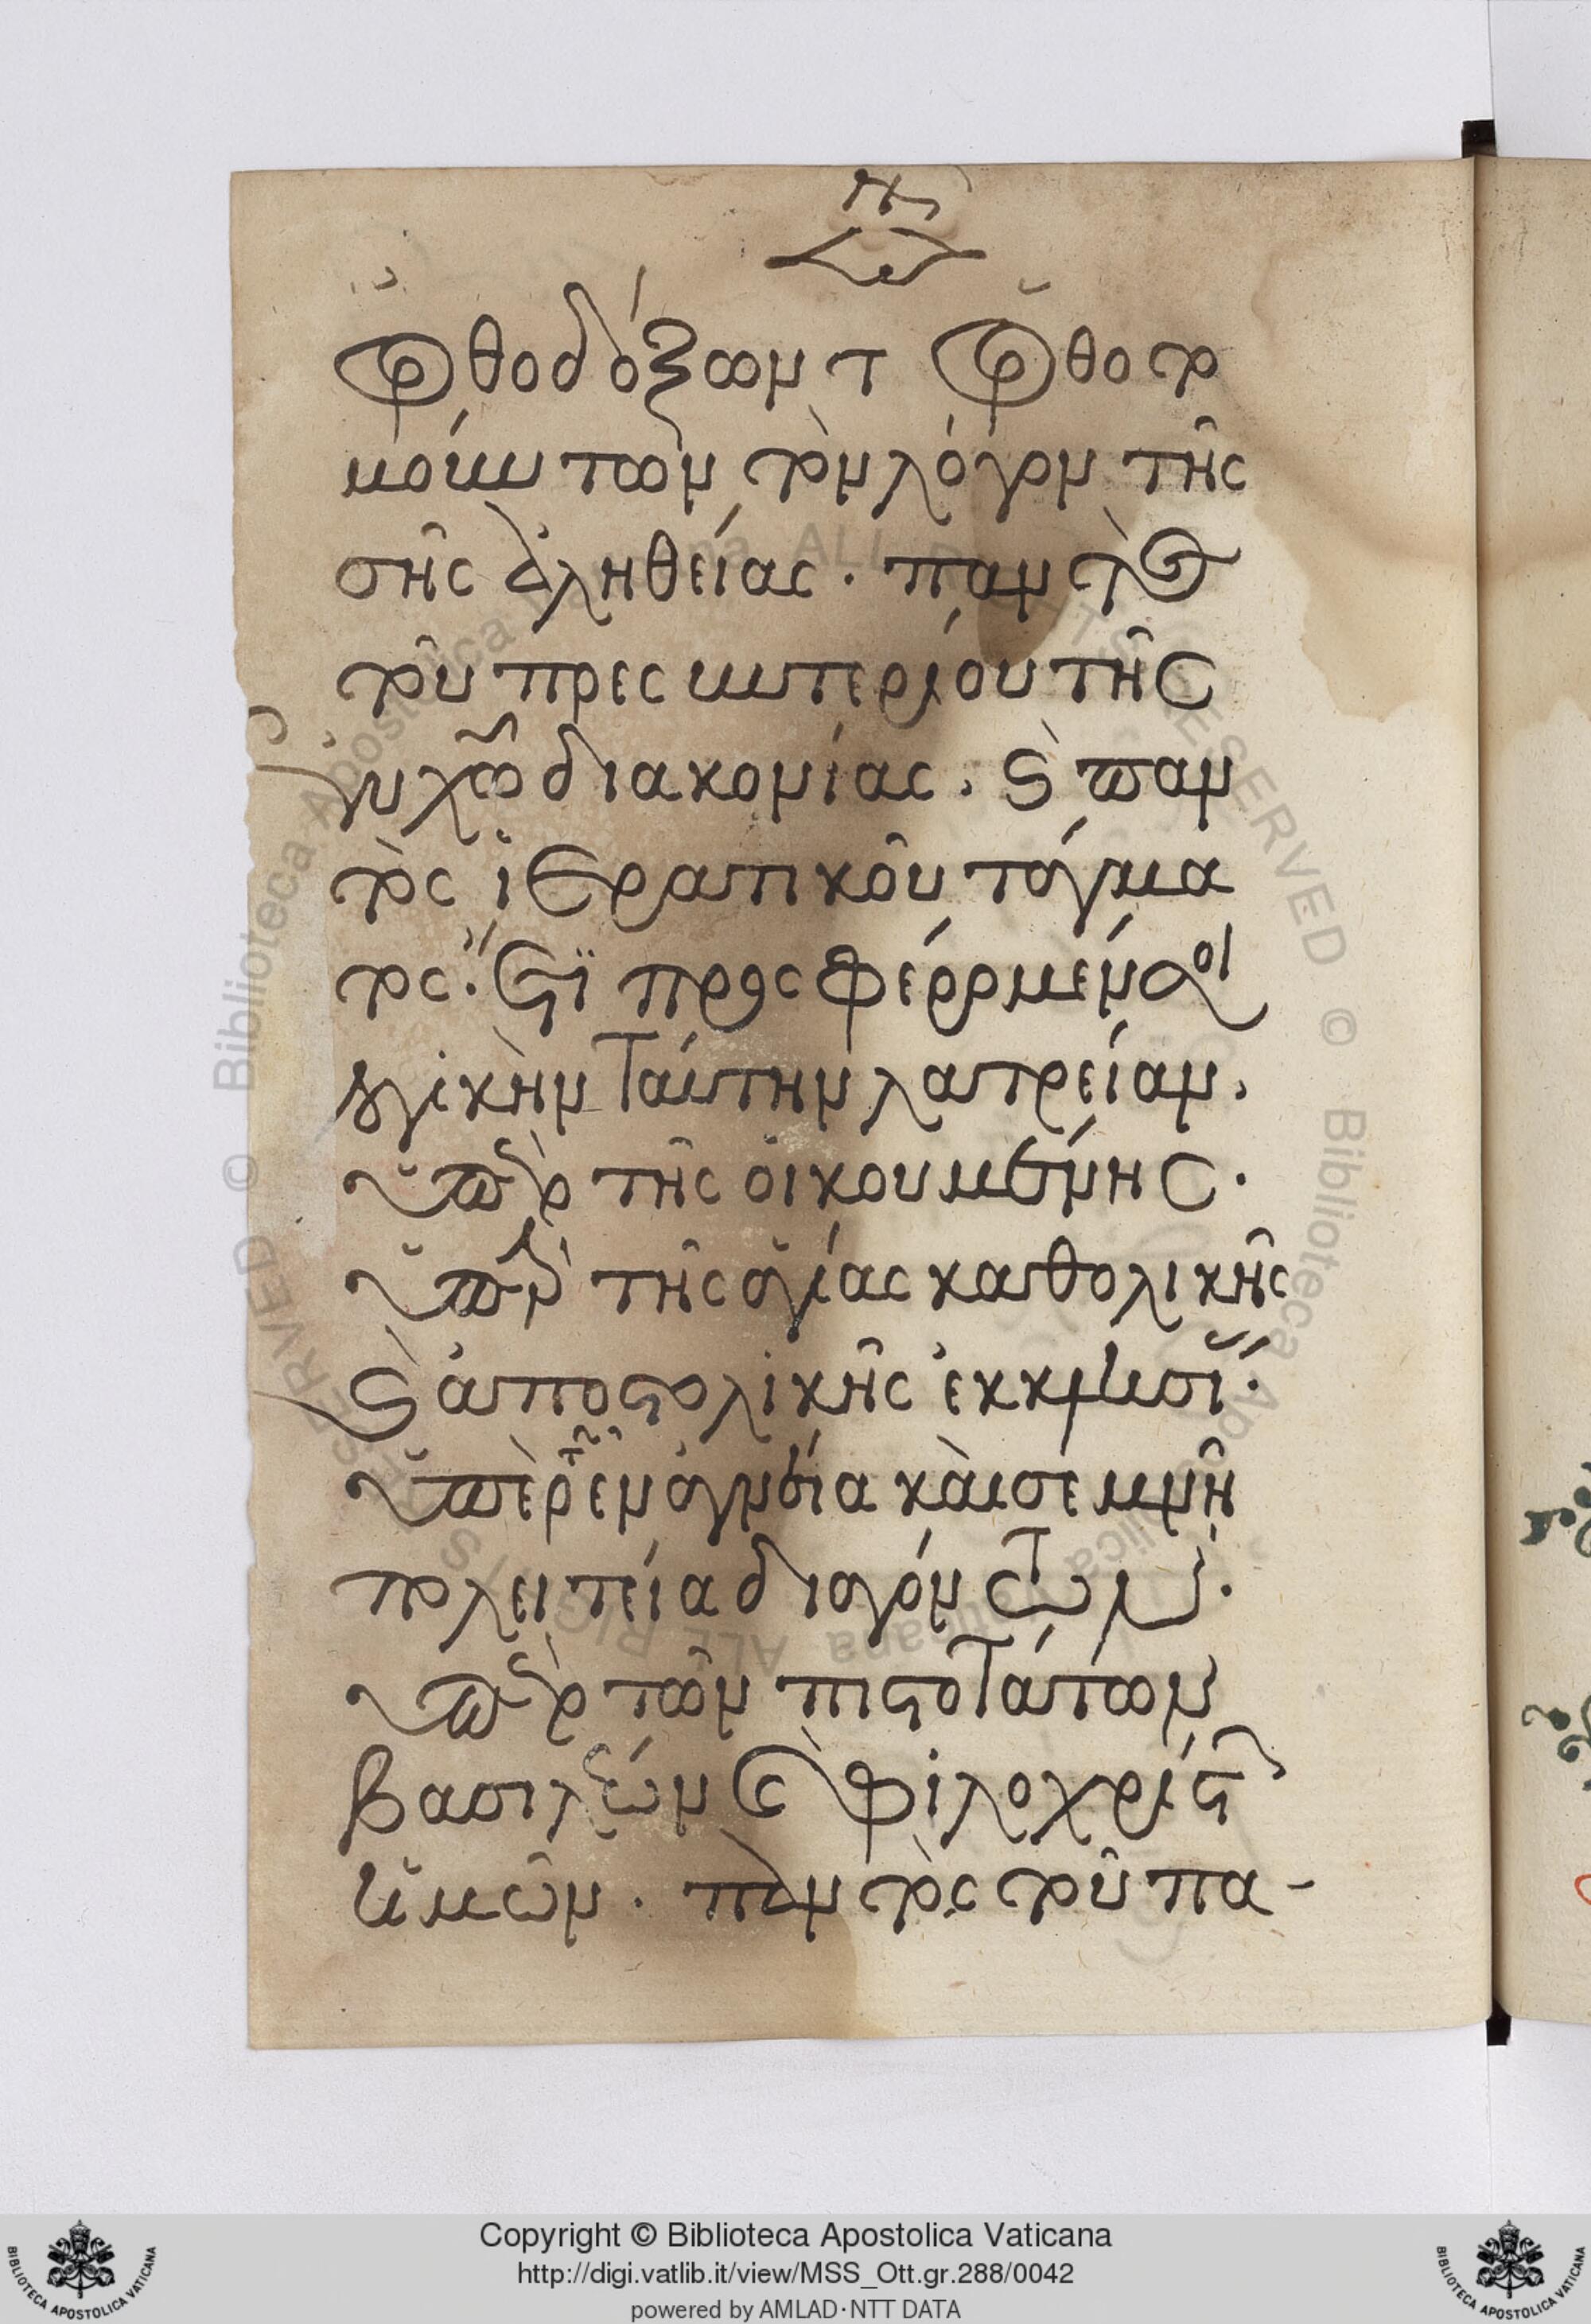 ὀρθοδόξων τ ὀρθοτο
μούντων τὸν λόγον τῆς
σῆς ἀληθείας. παντὸς
τοῦ πρεσβυτερίου τῆς
ἐν χῶ διακονίας. καὶ παν
τὸς ἱερατικοῦ τάγματος
τος. ἔτι προσφέρομέν σοι
λογικὴν ταύτην λατρείαν,
ὑπὲρ τῆς οἰκουμένης.
ὑπὲρ τῆς ἁγίας καθολικῆς
καὶ ἀποστολικῆς ἐκκλησί.
ὑπὲρ τῶν ἐν ἁγνεία καὶ σεμνῆ
πολιτεία διαγόντων.
ὑπὲρ τῶν πιστοτάτων
βασιλέων καὶ φιλοχρίστ
ἡμῶν. παντὸς τοῦ πα-
Copyright © Biblioteca Apostolica Vaticana
http://digi.vatlib.it/view/MSS_Ott.gr.288/0042
powered by AMLAD·NTT DATA